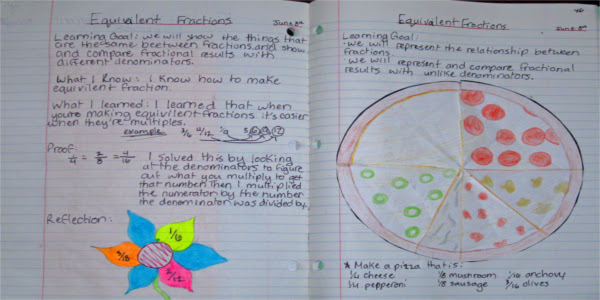 Equivalent Fractions
June 8th
Learning Goal: we will show the things that
are the same beetween fractions.and show
and compare fractional results with
different denominators.
What I Know: I Know how to make
equivilent fraction.
What I learned: I learned that when
you're making equivilent fractions it's easier
when they're multiples.
example
Proof:
1/4 = 2/8 = 4/16
I solved this by looking
at the denominators to figure
out what you multiply to get
that number. Then I multiplied
the numerator by the number
the denominator was divided by.
Reflection:
1/6
3/18
2/12
Equivalent Fractions
June 8th
Learning Goal:
we will represent the relationship between
fractions.
we will represent and compare fractional
results with unlike denominators.
* Make a pizza that is:
1/4 cheese 1/8 mushroom 1/16 anchovy
1/4 pepperoni 1/8 sausage 3/16 olives